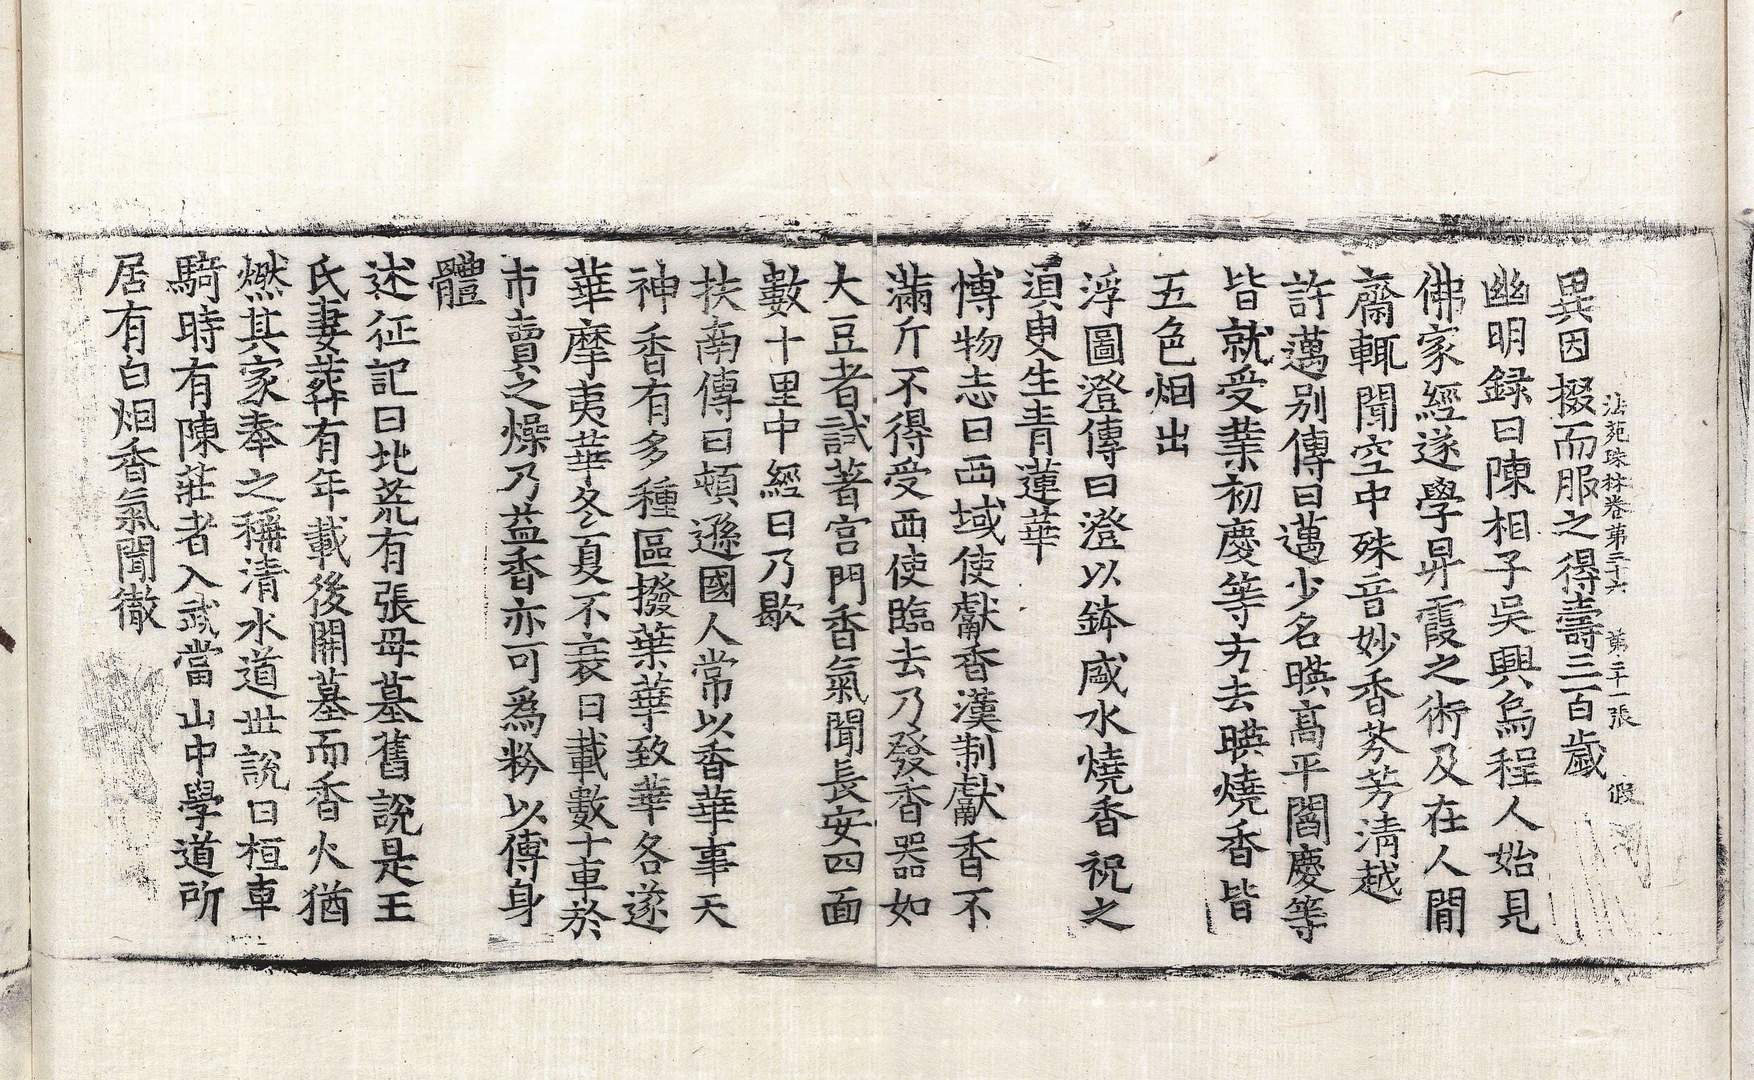 法苑珠林卷第三十六　第二十一張　假
異因掇而服之得壽三百歲
幽明録曰陳相子吳興烏程人始見
佛家經遂學昇霞之術及在人間
齋輒聞空中殊音妙香芬芳清越
許邁別傳曰邁少名暎高平閻慶等
皆就受業初慶等方去暎燒香皆
五色烟出
浮圖澄傳曰澄以鉢咸水燒香祝之
須臾生青蓮華
博物志曰西域使獻香漢制獻香不
滿斤不得受西使臨去乃發香器如
大豆者試著宮門香氣聞長安四面
數十里中經日乃歇
扶南傳曰頓遜國人常以香華事天
神香有多種區撥葉華致華各遂
華摩夷華冬夏不衰日載數十車於
市賣之燥乃益香亦可爲粉以傅身
體
述征記曰北荒有張母墓舊說是王
氏妻葬有年載後開墓而香火猶
燃其家奉之稱清水道世說曰桓車
騎時有陳莊者入武當山中學道所
居有白烟香氣聞徹